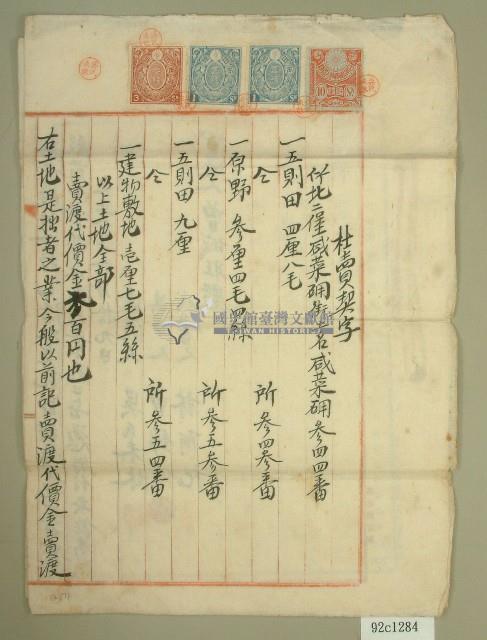 杜賣契字
竹北二堡咸菜硼街土名咸菜硼參四四番
一五則田 四厘八毛
仝 所參四參番
一原野 參厘四毛四絲
仝 所參五參番
一五則田 九厘
仝 所參五四番
一建物敷地 壱厘七毛五絲
以上土地全部
賣渡代價金參百円也
右土地是拙者之業今般以前記賣渡代價金賣渡
10
1 Sn
1 Sn
3 Sn
國史館臺灣文獻館
TAIWAN HISTORICA
92c1284